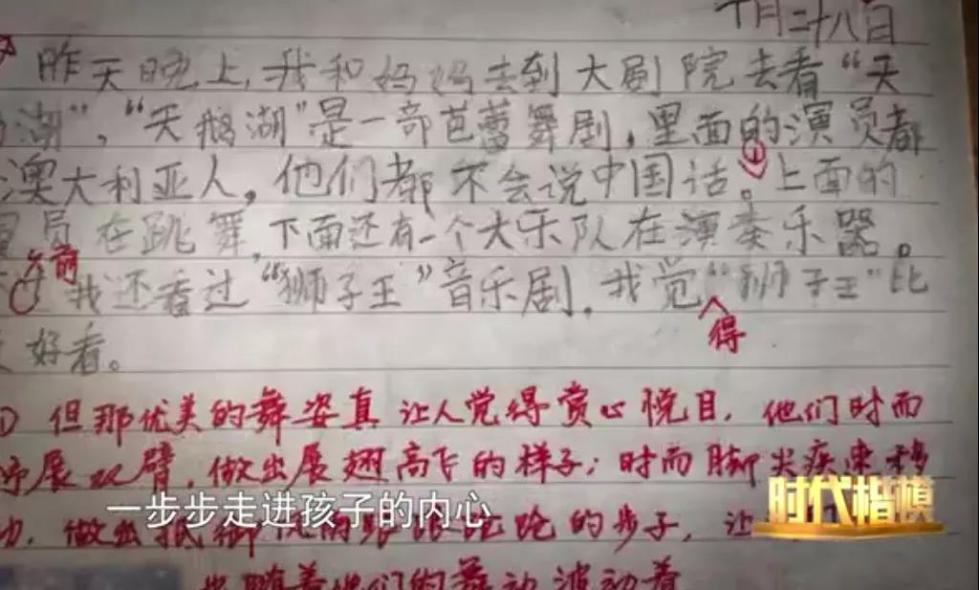 十月二十八日
昨天晚上,我和妈妈去到大剧院去看“天
湖”,“天鹅湖”是一部芭蕾舞剧,里面的演员都
①
澳大利亚人,他们都不会说中国话。上面的
员在跳舞,下面还有一个大乐队在演奏乐器。
前
我还看过“狮子王”音乐剧,我觉“狮子王”比
得
好看。
① 但那优美的舞姿真让人觉得赏心悦目,他们时而
展双臂,做出展翅高飞的样子;时而脚尖疾速移
一步步走进孩子的内心
时代楷模
做出 的步子,让
随着他们的舞动波动着